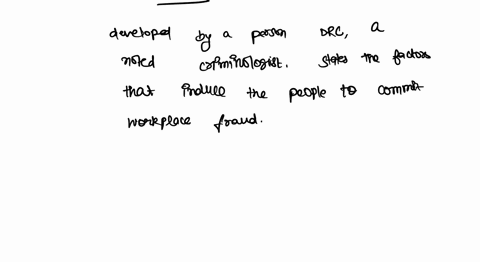 developed by a person DRC, a
noted criminologist. states the factors
that induce the people to commit
workplace fraud.